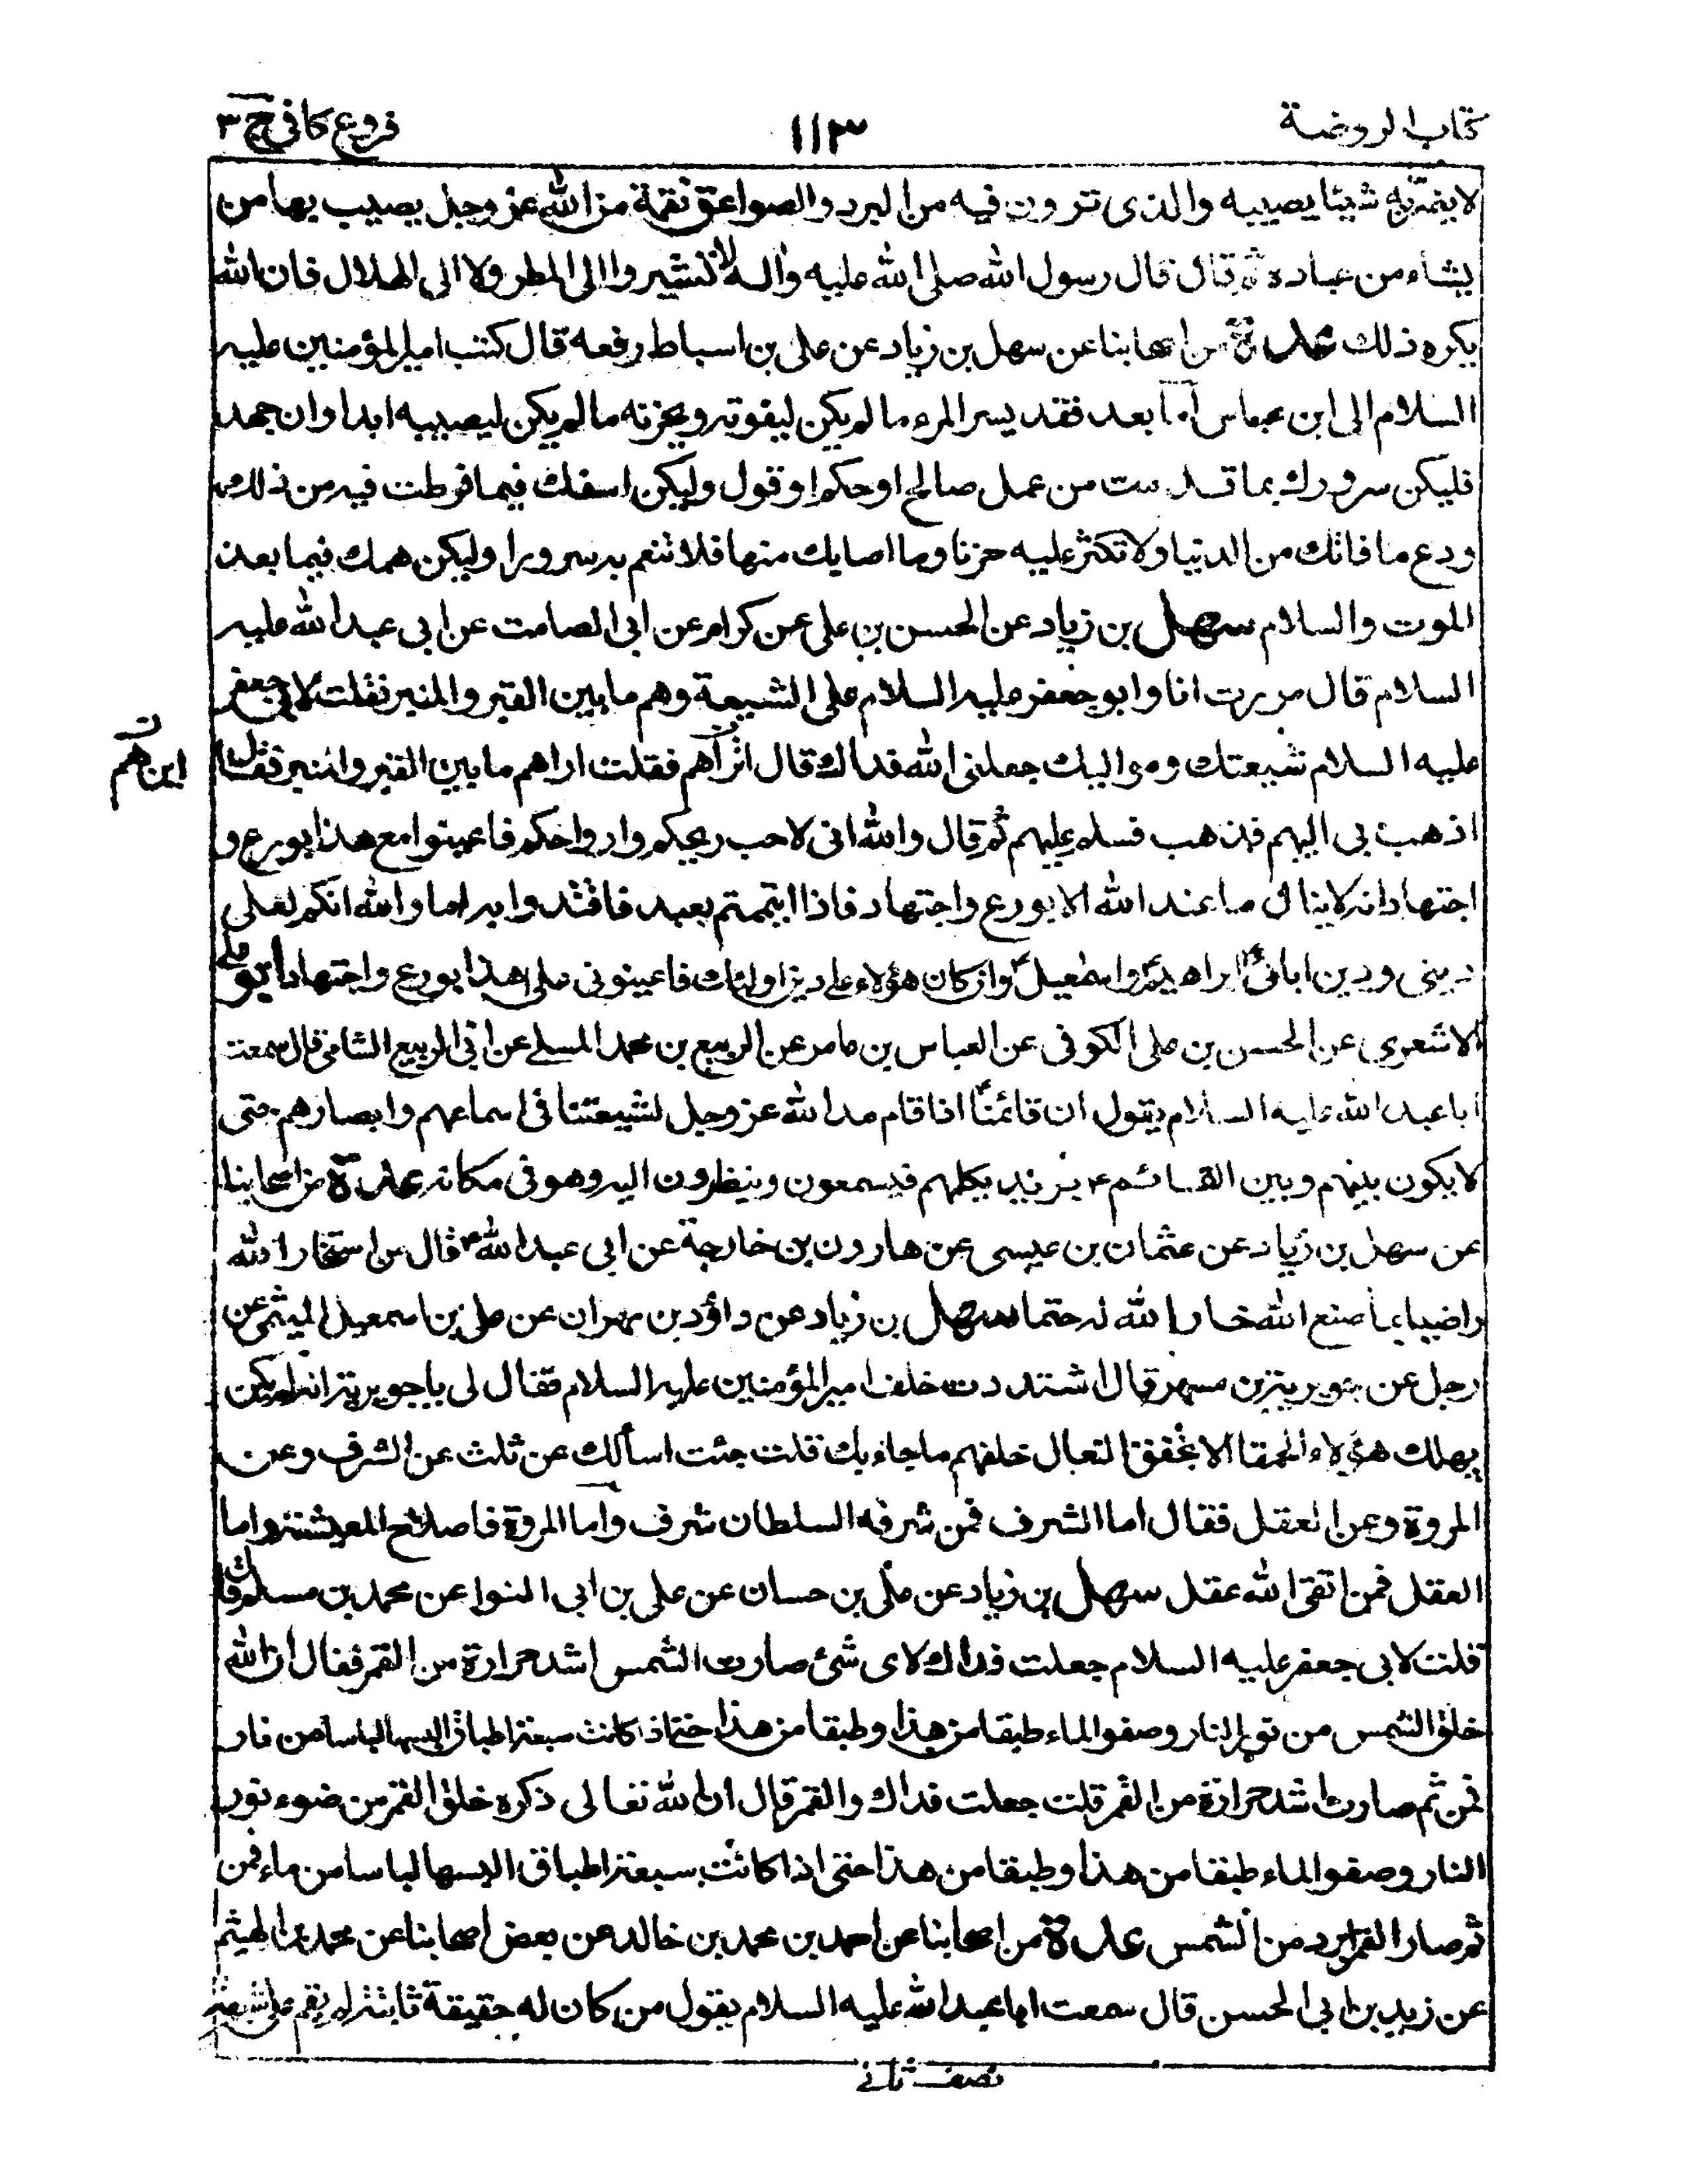 كتاب الروضة
١١٣
فروع كافي ج ٣
لا يضرّ به شيئا يصيبه والذى ترون فيه من البرد والصواعق نقمة من الله عز وجل يصيب بها من
يشاء من عباده ثم قال قال رسول الله صلى الله عليه واله لا تشيروا الى المطر ولا الى الهلال فان الله
يكره ذلك عدة من اصحابنا عن سهل بن زياد عن على بن اسباط رفعه قال كتب امير المؤمنين عليه
السلام الى ابن عباس اما بعد فقد يسر المرء ما لم يكن ليفوته ويحزنه ما لم يكن ليصيبه ابدا وان جهد
فليكن سرورك بما قدمت من عمل صالح او حكم او قول وليكن اسفك فيما فرطت فيه من ذلك
ودع ما فاتك من الدنيا ولا تكثر عليه حزنا وما اصابك منها فلا تنعم به سرورا وليكن همك فيما بعد
الموت والسلام سهل بن زياد عن الحسن بن على عن كرام عن ابى الصامت عن ابى عبد الله عليه
السلام قال مررت انا وابو جعفر عليه السلام على الشيعة وهم ما بين القبر والمنبر فقلت لابى جعفر
عليه السلام شيعتك ومواليك جعلنى الله فداك قال اتراهم فقلت اراهم ما بين القبر والمنبر فقال
اين هم
اذهب بى اليهم فذهب فسلم عليهم ثم قال والله انى لاحب ريحكم وارواحكم فاعينوا مع هذا بورع و
اجتهاد انه لا ينال ما عند الله الا بورع واجتهاد فاذا ائتممتم بعبد فاقتدوا به اما والله انكم لعلى
دينى ودين ابائى ابراهيم واسمعيل وان كان هؤلاء على دين اولئك فاعينونى على هذا بورع واجتهاد ابو على
الاشعرى عن الحسن بن على الكوفى عن العباس بن عامر عن الربيع بن محمد المسلى عن ابى الربيع الشامى قال سمعت
ابا عبد الله عليه السلام يقول ان قائمنا اذا قام مد الله عز وجل لشيعتنا فى اسماعهم وابصارهم حتى
لا يكون بينهم وبين القائم بريد يكلمهم فيسمعون وينظرون اليه وهو فى مكانه عدة من اصحابنا
عن سهل بن زياد عن عثمان بن عيسى عن هارون بن خارجة عن ابى عبد الله قال من استخار الله
راضيا بما صنع الله خار الله له حتما سهل بن زياد عن داؤد بن مهران عن على بن اسمعيل الميثمى عن
رجل عن جويرية بن مسهر قال اشتددت خلف امير المؤمنين عليه السلام فقال لى يا جويرية انه لم يكن
يهلك هؤلاء الحمقا الا بخفق النعال خلفهم ما جاء بك قلت جئت اسألك عن ثلث عن الشرف وعن
المروة وعن العقل فقال اما الشرف فمن شرفه السلطان شرف واما المروة فاصلاح المعيشة واما
العقل فمن اتقى الله عقل سهل بن زياد عن على بن حسان عن على بن ابى النوا عن محمد بن مسلم قال
قلت لابى جعفر عليه السلام جعلت فداك لاى شئ صارت الشمس اشد حرارة من القمر فقال ان الله
خلق الشمس من نور النار وصفو الماء طبقا من هذا وطبقا من هذا حتى اذا كانت سبعة اطباق البسها لباسا من نار
فمن ثم صارت اشد حرارة من القمر قلت جعلت فداك والقمر قال ان الله تعالى ذكره خلق القمر من ضوء نور
النار وصفو الماء طبقا من هذا وطبقا من هذا حتى اذا كانت سبعة اطباق البسها لباسا من ماء فمن
ثم صار القمر ابرد من الشمس عدة من اصحابنا عن احمد بن محمد بن خالد عن بعض اصحابنا عن محمد بن الهيثم
عن زيد بن ابى الحسن قال سمعت ابا عبد الله عليه السلام يقول من كان له حقيقة ثابتة لم يقم على شبهة
نصف ثانى